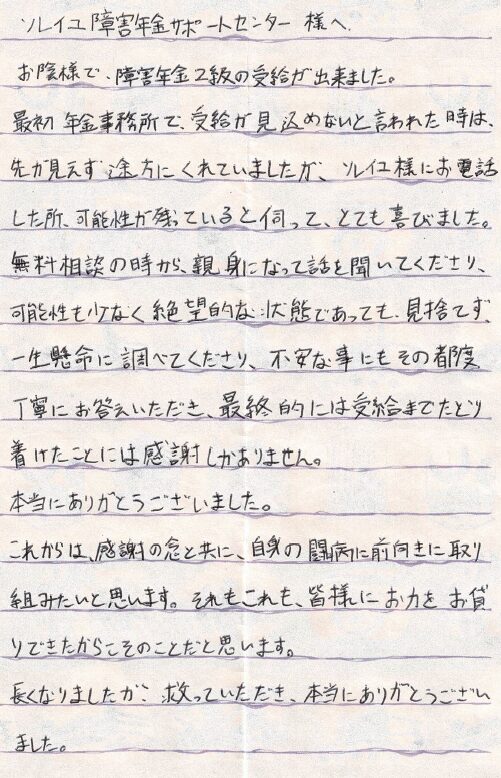 ソレイユ障害年金サポートセンター 様へ.
お陰様で、障害年金2級の受給が出来ました。
最初 年金事務所で、受給が見込めないと言われた時は、
先が見えず途方にくれていましたが、ソレイユ様にお電話
した所、可能性が残っていると伺って、とても喜びました。
無料相談の時から、親身になって話を聞いてくださり、
可能性も少なく絶望的な状態であっても、見捨てず、
一生懸命に調べてくださり、不安な事にもその都度、
丁寧にお答えいただき、最終的には受給までたどり
着けたことには感謝しかありません。
本当にありがとうございました。
これからは、感謝の念と共に、自身の闘病に前向きに取り
組みたいと思います。それもこれも、皆様にお力をお貸
りできたからこそのことだと思います。
長くなりましたが、救っていただき、本当にありがとうござい
ました。